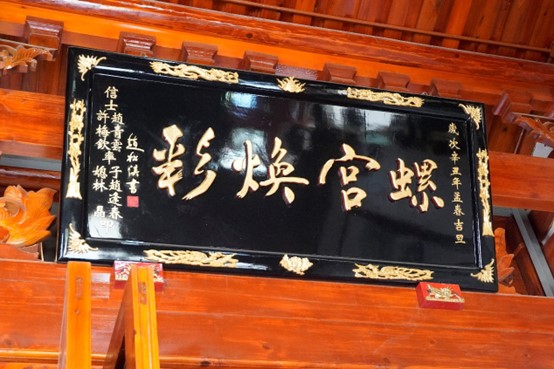 歲次辛丑年孟春吉旦
螺宮煥彩
趙松濱書
信士趙青雲率子趙逢春
許梅欽 媳林晶